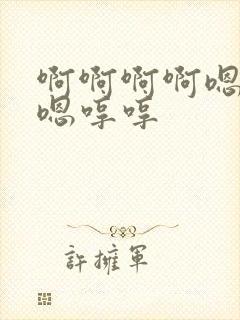 啊啊啊啊嗯
嗯哼哼
許擁軍